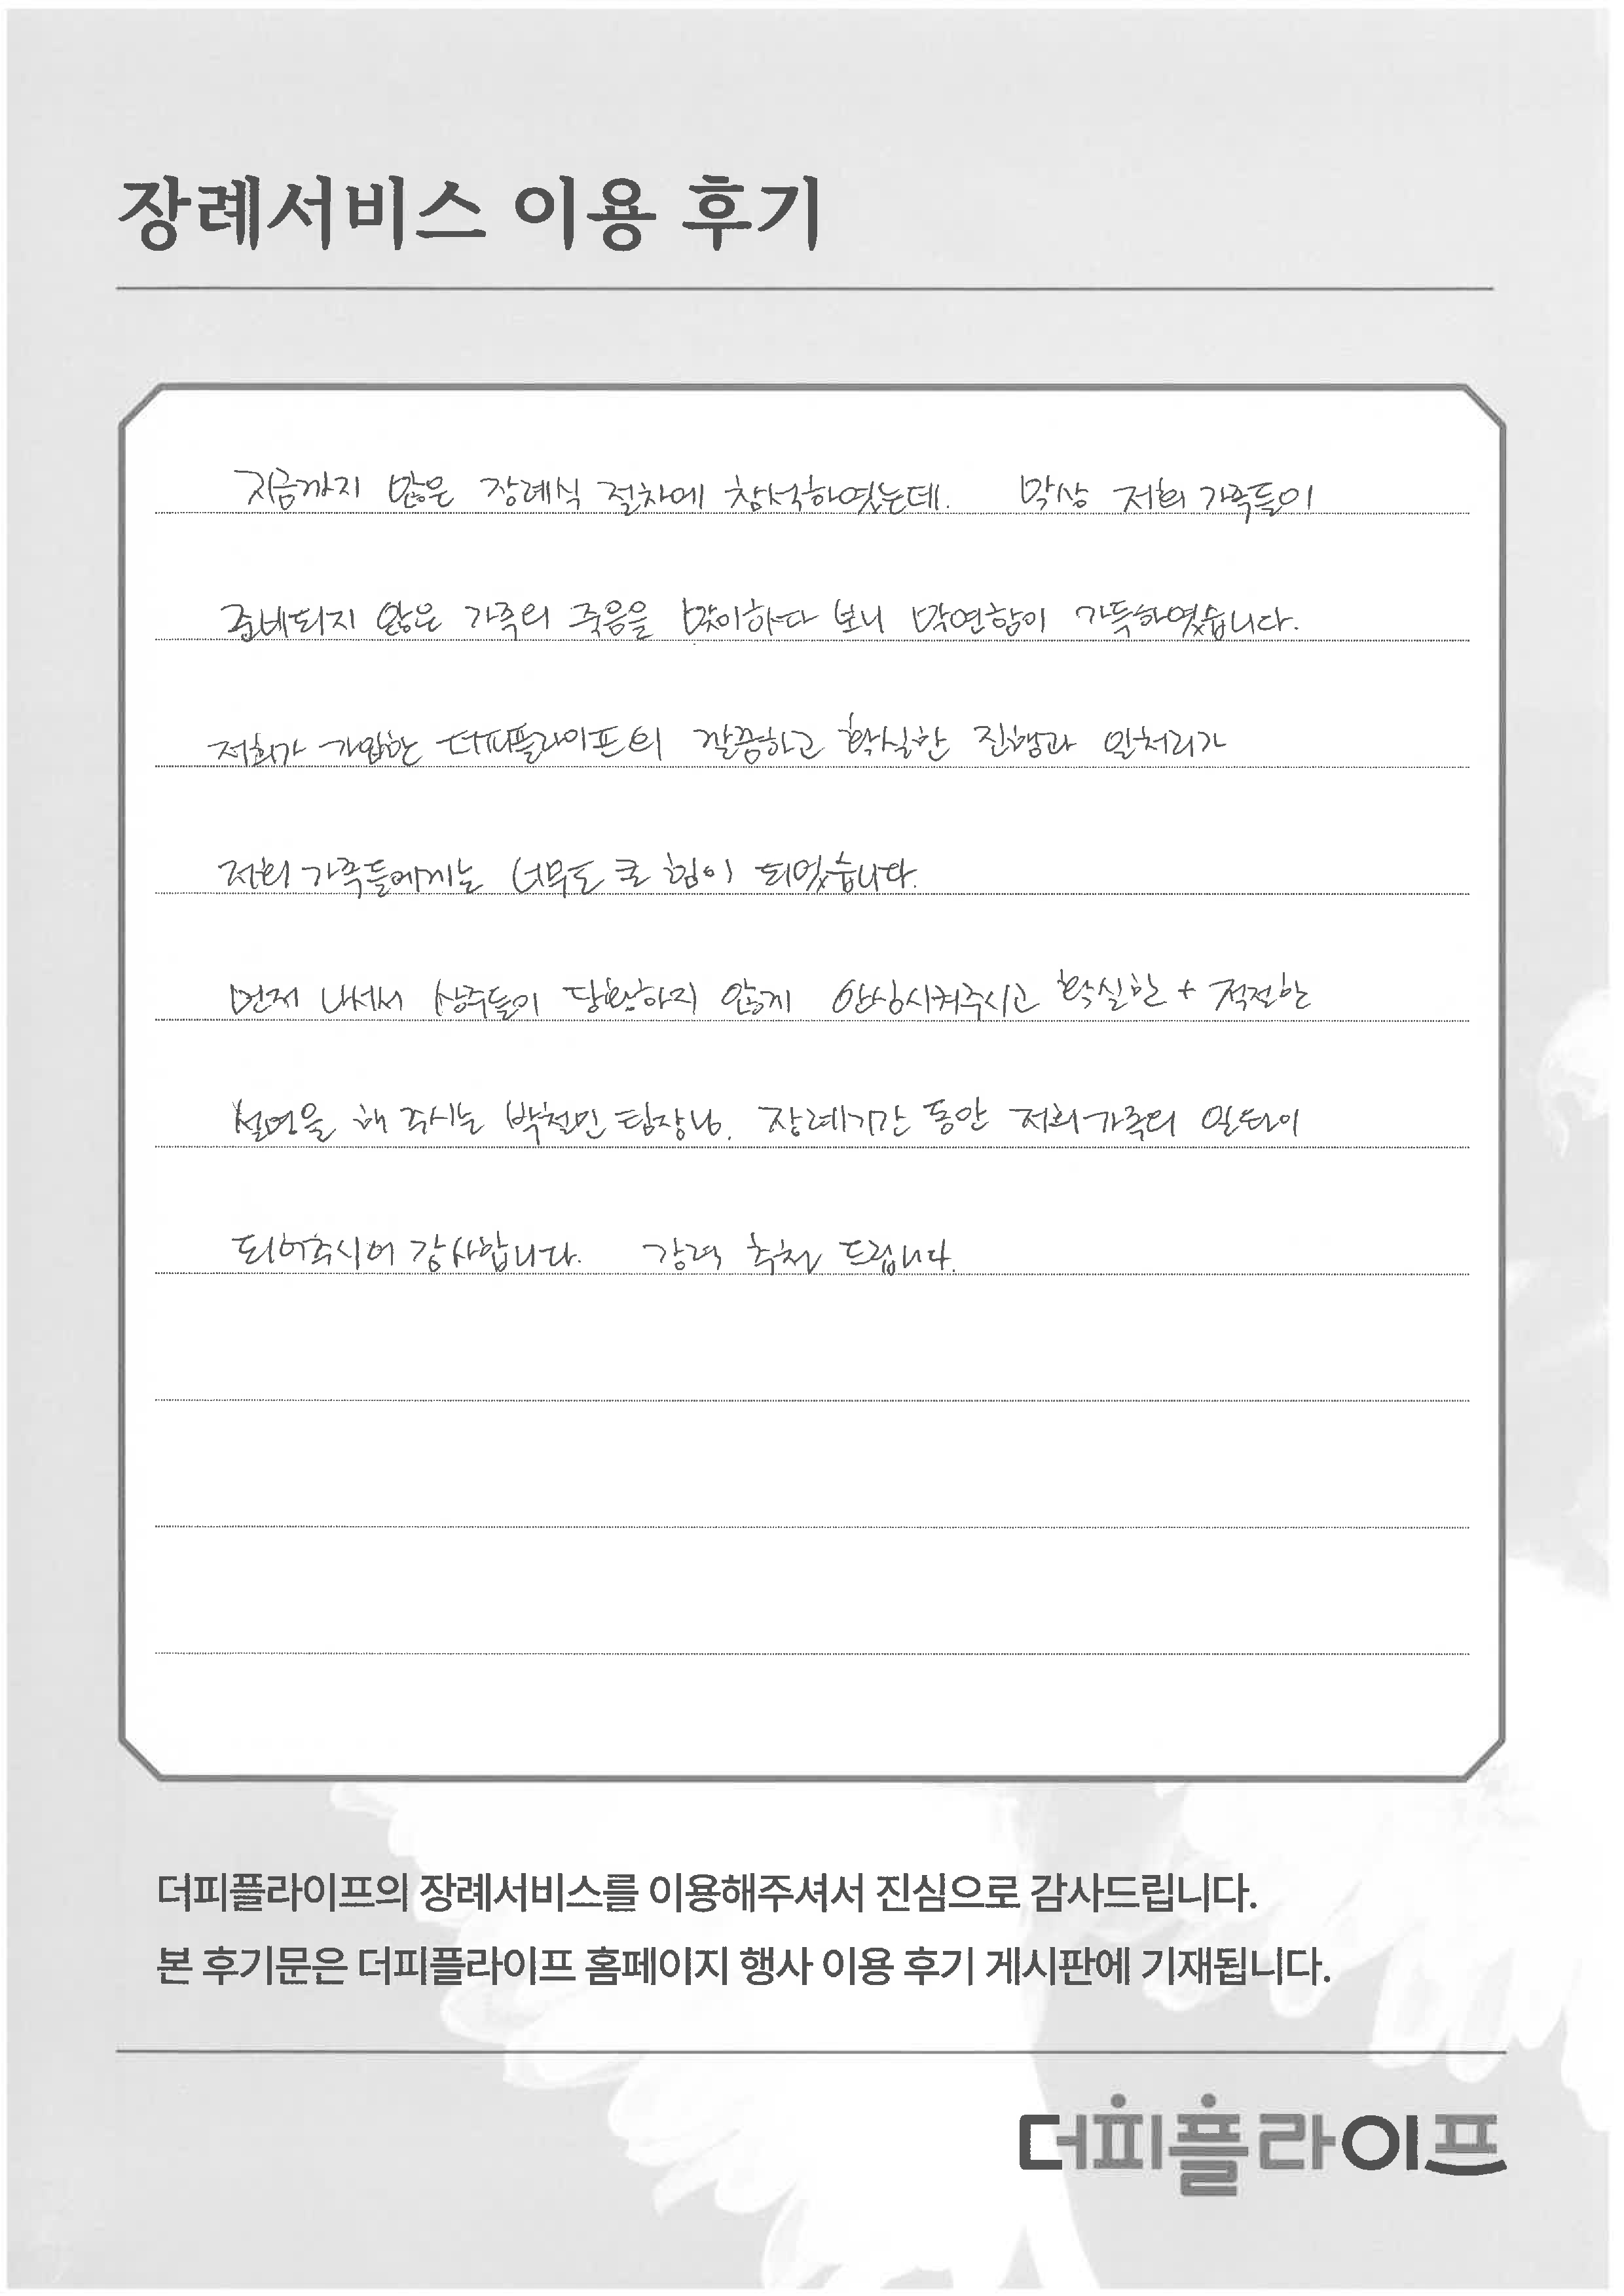 장례서비스 이용 후기
지금까지 많은 장례식 절차에 참석하였는데. 막상 저희 가족들이
준비되지 않은 가족의 죽음을 맞이하다 보니 막연함이 가득하였습니다.
저희가 가입한 더피플라이프의 깔끔하고 확실한 진행과 일처리가
저희 가족들에게는 너무도 큰 힘이 되었습니다.
먼저 나서서 상주들이 당황하지 않게 안심시켜주시고 확실한 + 적절한
설명을 해 주시는 박철민 팀장님. 장례기간 동안 저희 가족의 일원이
되어주시어 감사합니다. 강력 추천 드립니다.
더피플라이프의 장례서비스를 이용해주셔서 진심으로 감사드립니다.
본 후기문은 더피플라이프 홈페이지 행사 이용 후기 게시판에 기재됩니다.
더피플라이프